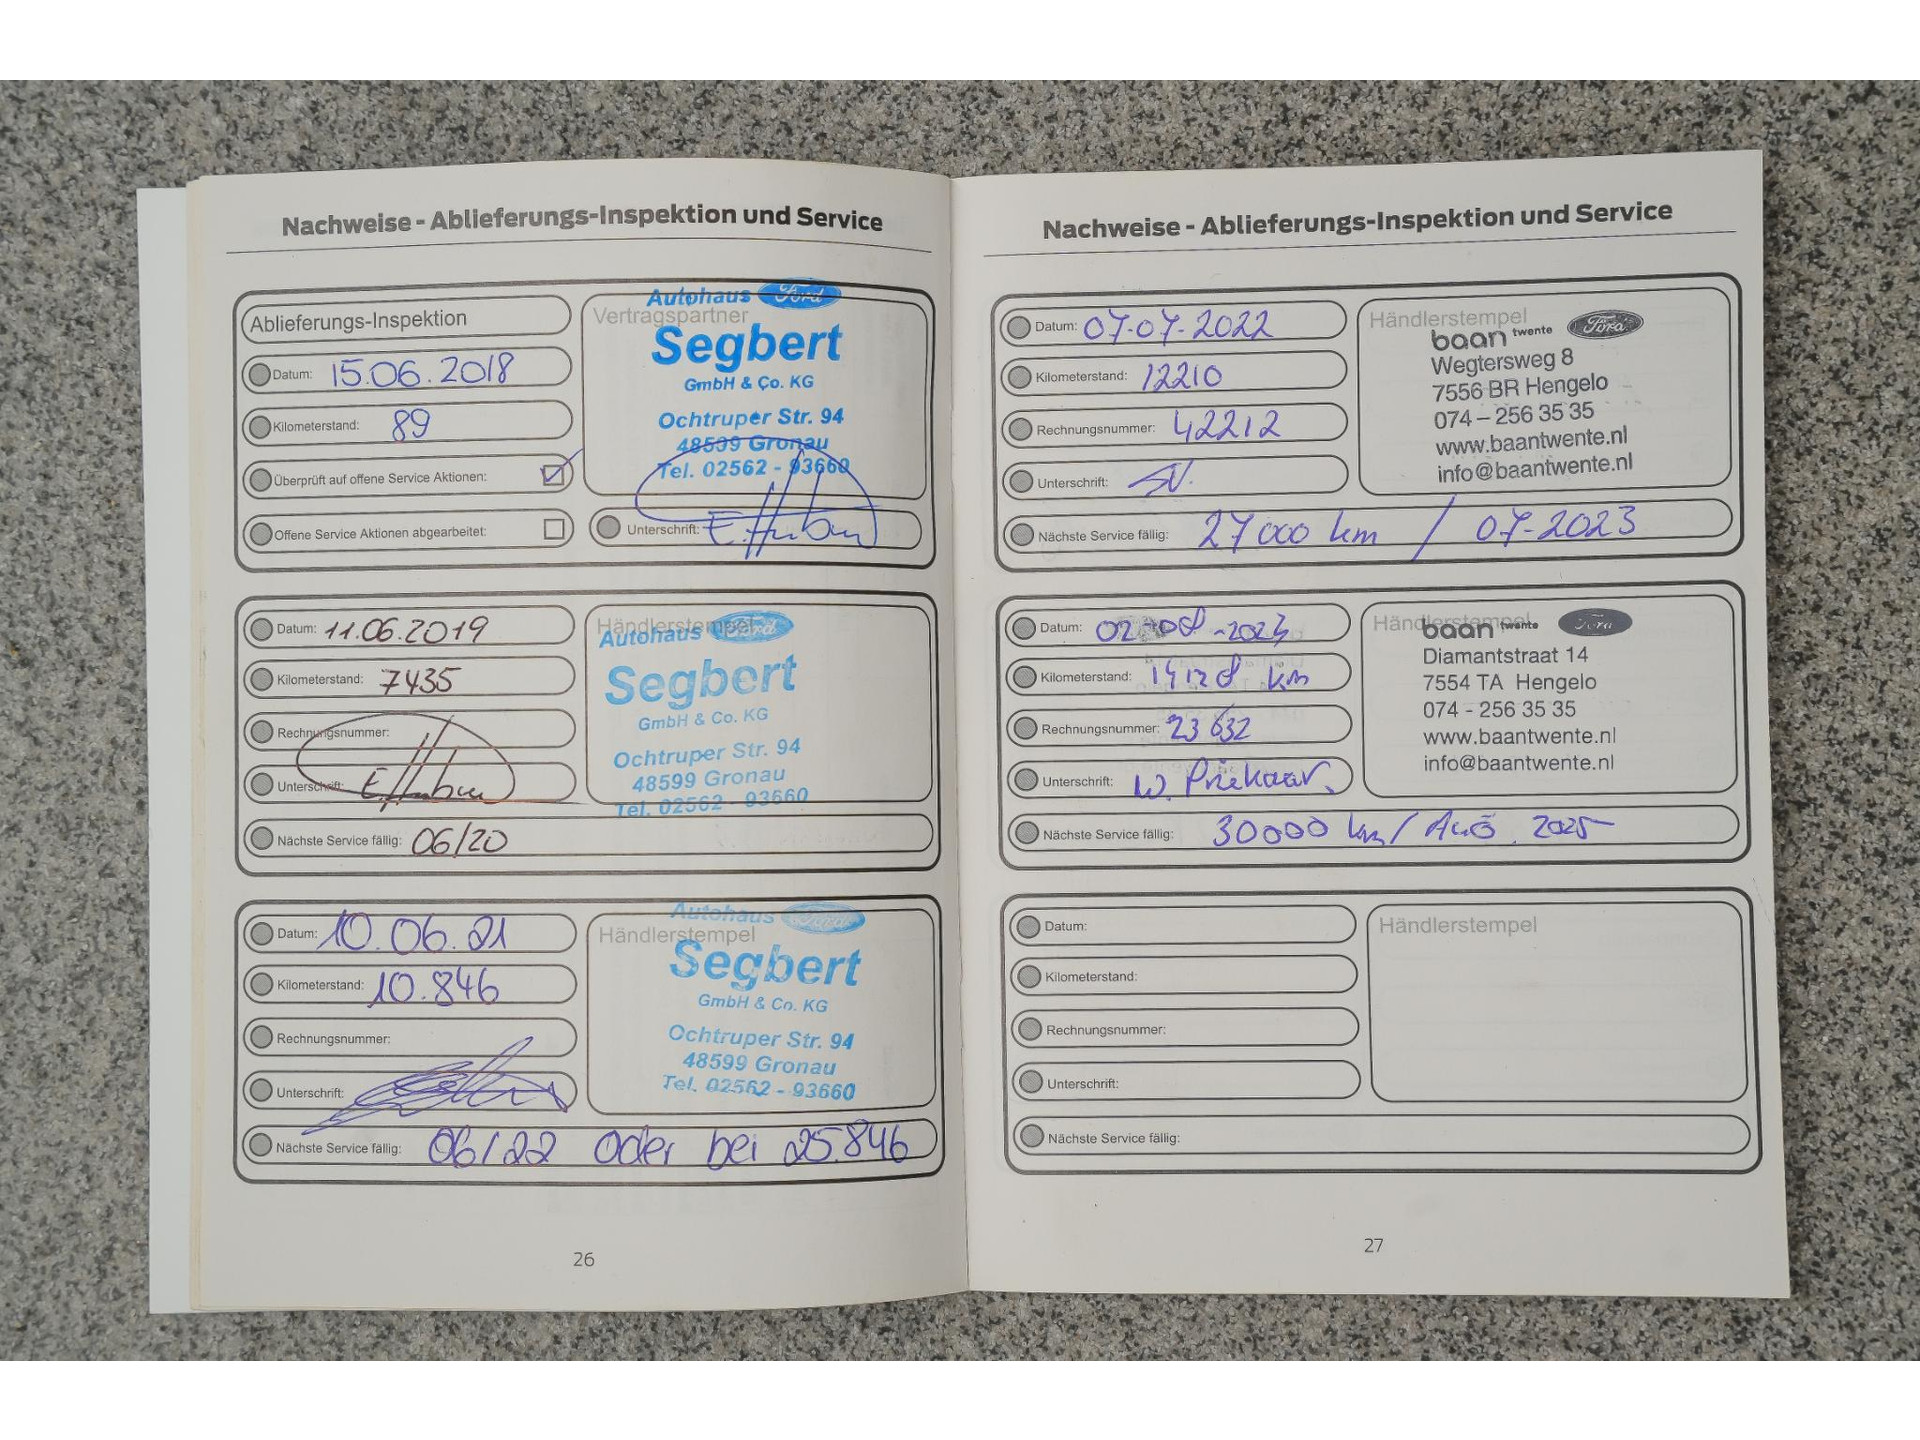 Nachweise - Ablieferungs-Inspektion und Service
Ablieferungs-Inspektion
Datum: 15.06.2018
Kilometerstand: 89
Überprüft auf offene Service Aktionen:
Offene Service Aktionen abgearbeitet:
Vertragspartner
Autohaus Ford
Segbert
GmbH & Co. KG
Ochtruper Str. 94
48599 Gronau
Tel. 02562 - 93660
Unterschrift:
Datum: 11.06.2019
Kilometerstand: 7435
Rechnungsnummer:
Unterschrift:
Nächste Service fällig: 06/20
Händlerstempel
Autohaus Ford
Segbert
GmbH & Co. KG
Ochtruper Str. 94
48599 Gronau
Tel. 02562 - 93660
Datum: 10.06.21
Kilometerstand: 10.846
Rechnungsnummer:
Unterschrift:
Nächste Service fällig: 06/22 oder bei 25.846
Händlerstempel
Autohaus Ford
Segbert
GmbH & Co. KG
Ochtruper Str. 94
48599 Gronau
Tel. 02562 - 93660
26
Nachweise - Ablieferungs-Inspektion und Service
Datum: 07-07-2022
Kilometerstand: 12210
Rechnungsnummer: 42212
Unterschrift:
Nächste Service fällig: 27000 km / 07-2023
Händlerstempel
baan twente Ford
Wegtersweg 8
7556 BR Hengelo
074 - 256 35 35
www.baantwente.nl
info@baantwente.nl
Datum: 02-08-2023
Kilometerstand: 14128 km
Rechnungsnummer: 23632
Unterschrift: W. Priekaar.
Nächste Service fällig: 30000 km / AUG. 2025
Händlerstempel
baan twente Ford
Diamantstraat 14
7554 TA Hengelo
074 - 256 35 35
www.baantwente.nl
info@baantwente.nl
Datum:
Kilometerstand:
Rechnungsnummer:
Unterschrift:
Nächste Service fällig:
Händlerstempel
27